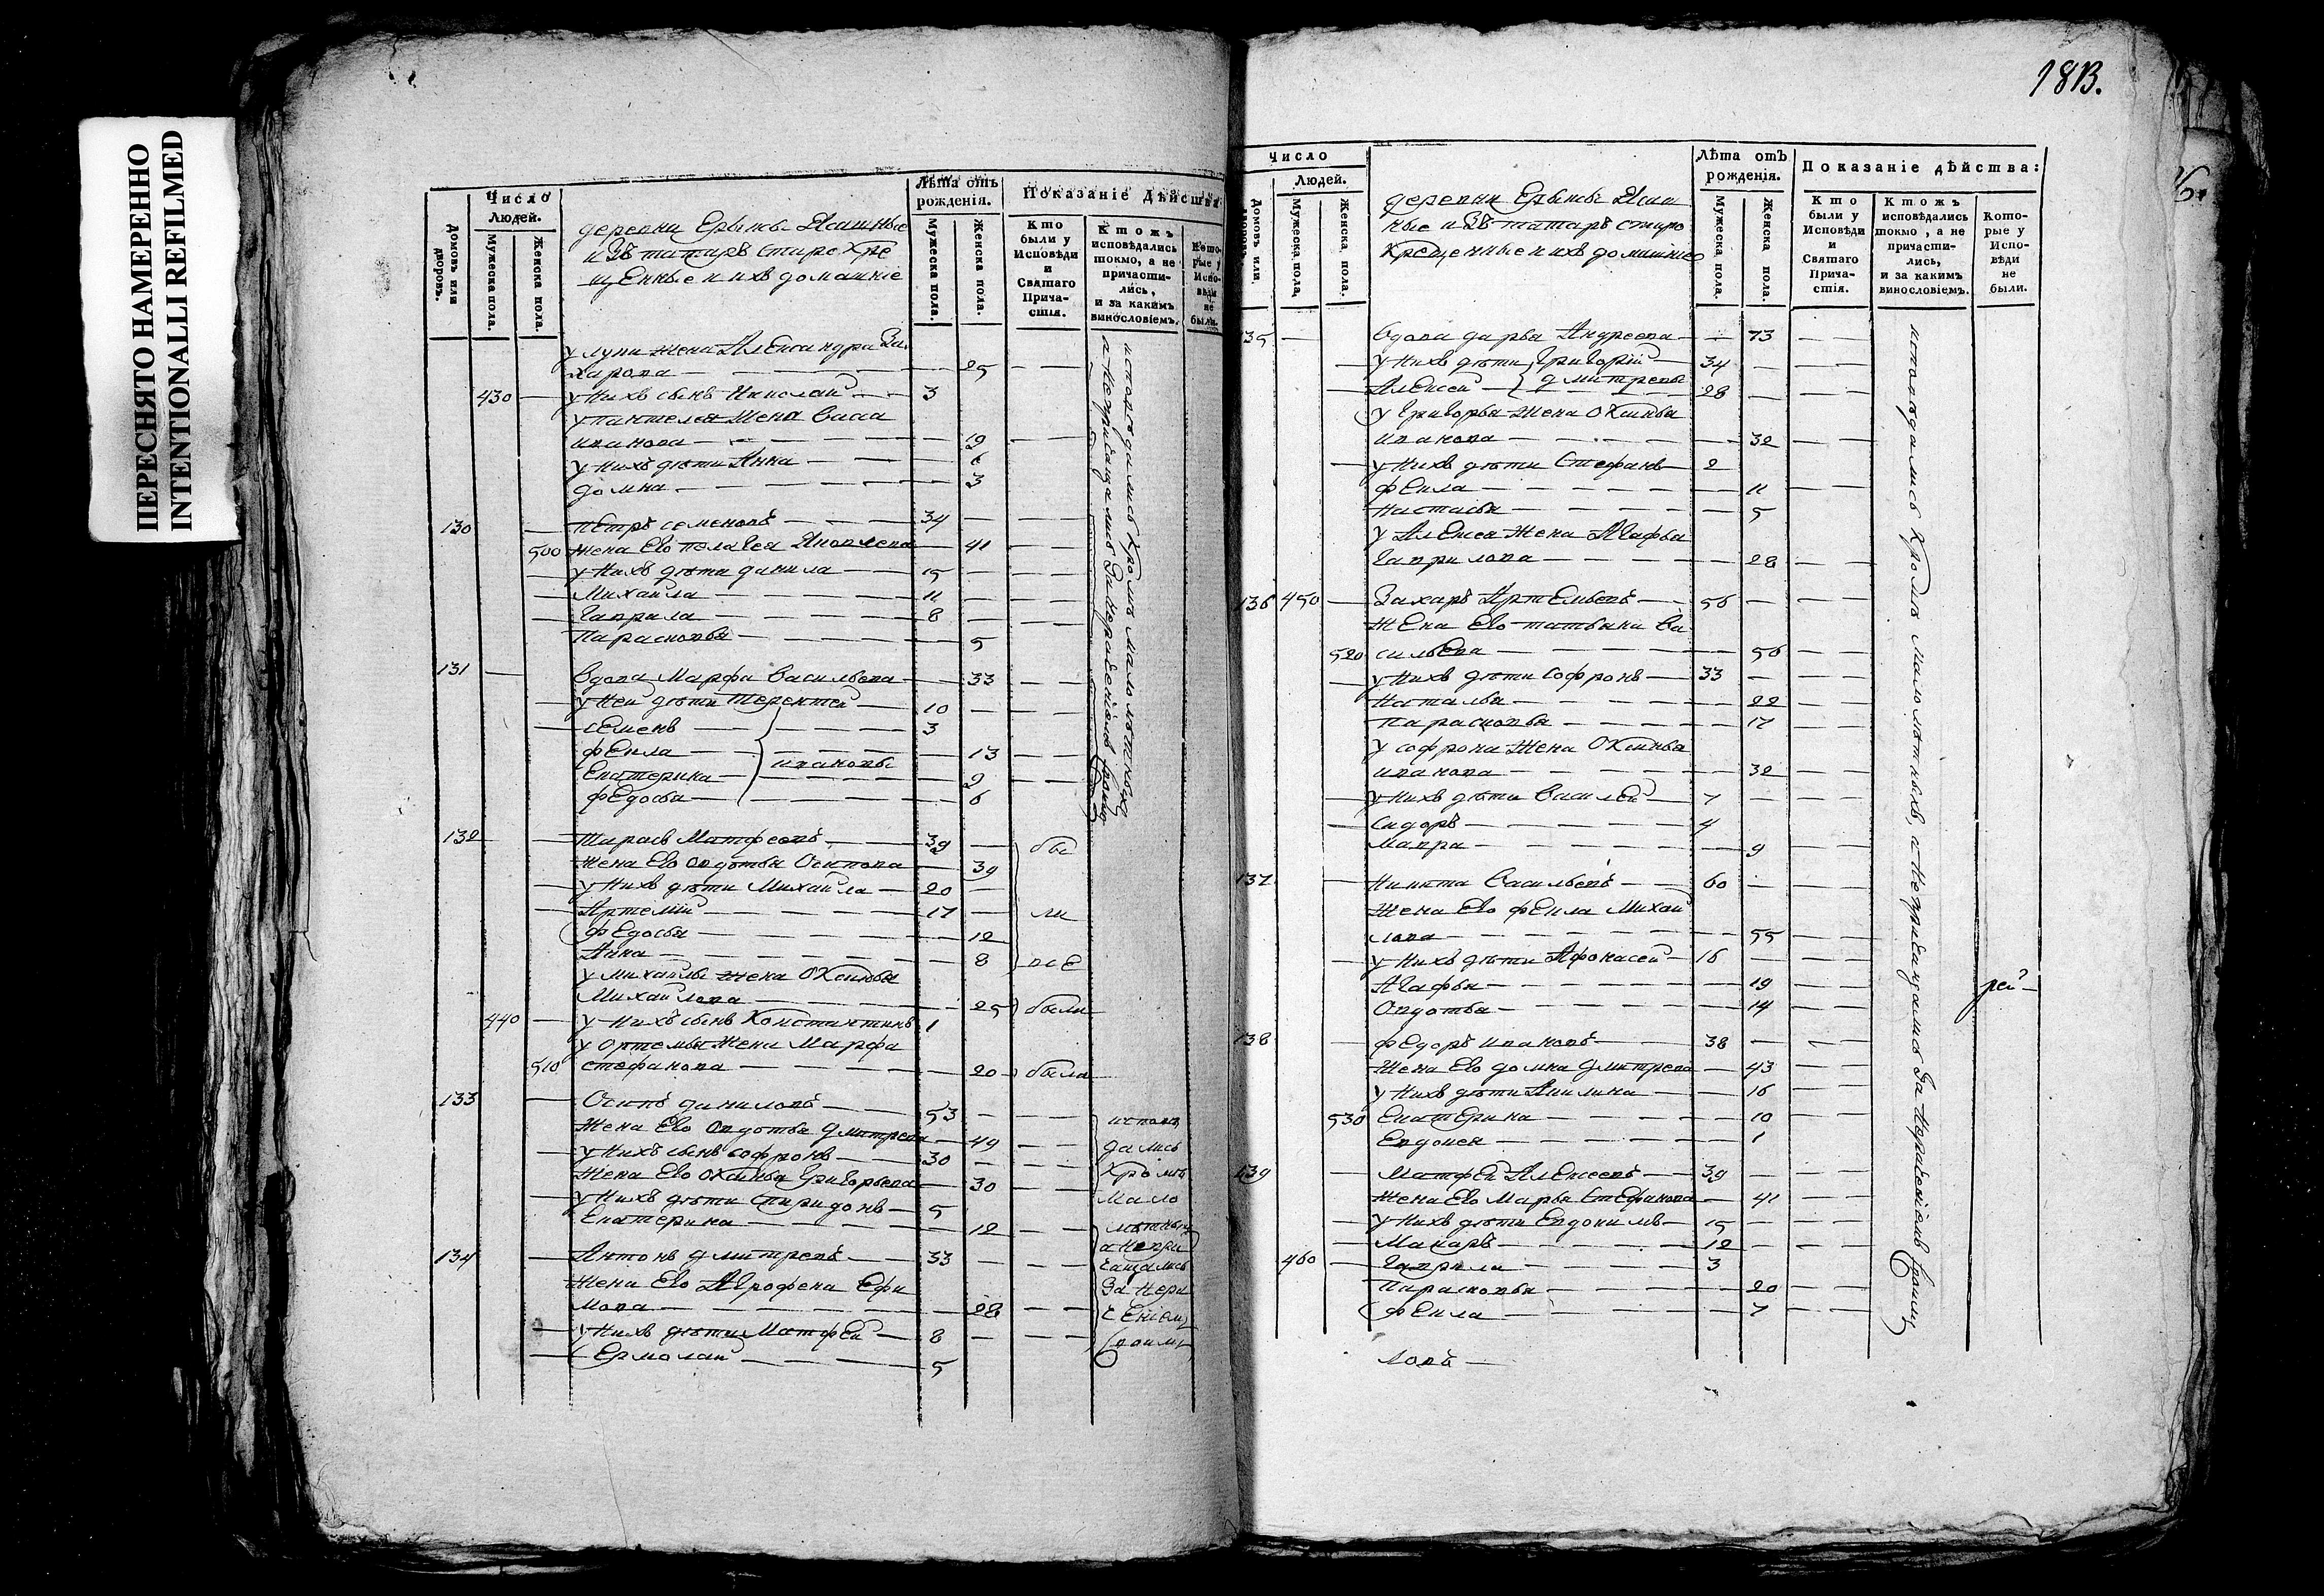 ПЕРЕСНЯТО НАМЕРЕННО
INTENTIONALLI REFILMED
Число
Людей.
Домовъ или дворовъ.
Мужеска пола.
Женска пола.
деревни Ерыксы Ясашные
изъ татаръ старо кре
щенные и ихъ домашнiе
Лѣта отъ рожденiя.
Мужеска пола.
Женска пола.
Показанiе дѣйства:
Кто были у Исповѣди и Святаго Причастiя.
Ктожъ исповѣдались токмо, а не причастились, и за какимъ винословiемъ.
Которые у Исповѣди не были.
у луки жена Александра За
харова 25
430 у нихъ сынъ Николай 3
у пантелея жена Васса
иванова 19
у нихъ дѣти Анна 6
домна 3
130 Петръ семеновъ 34
500 жена ево пелагея Яковлева 41
у нихъ дѣти данила 15
Михайла 11
Гаврила 8
Парасковья 5
131 Вдова Марфа Васильева 33
у ней дѣти Терентей 10
семенъ 3
фекла 13
Екатерина ивановы 9
федосья 6
исповѣдались кромѣ малолѣтныхъ
а непричащались за нерачениемъ своимъ
132 Тарасъ Матфеевъ 39
жена ево овдотья Осипова 39
у нихъ дѣти Михайла 20
Артемiй 17
федосья 12
Анна 8
у михайлы жена Оксинья
Михайлова 25
бы
ли
все
были
440 у нихъ сынъ Константинъ 1
у Ортемья жена Марфа
510 стефанова 20 была
133 Осипъ даниловъ 53
жена ево овдотья дмитрева 49
у нихъ сынъ софронъ 30
жена ево оксинья григорьева 30
у нихъ дѣти спиридонъ 5
Екатерина 12
134 Антонъ дмитревъ 33
жена ево Агрофена Ефи
мова 28
у нихъ дѣти Матфей 8
Ермолай 5
исповѣ
дались
кромѣ
мало
лѣтныхъ
а непри
чащались
за нера
чениемъ
своимъ
183.
Число
Людей.
Домовъ или
Мужеска пола.
Женска пола.
деревни Ерыксы Ясаш
ные изъ татаръ старо
крещенные и ихъ домашнiе
Лѣта отъ рожденiя.
Мужеска пола.
Женска пола.
Показанiе дѣйства:
Кто были у Исповѣди и Святаго Причастiя.
Ктожъ исповѣдались токмо, а не причастились, и за какимъ винословiемъ.
Которые у Исповѣди не были.
135 Вдова дарья Андреева 73
у нихъ дѣти григорiй 34
Алексей дмитревы 28
у григорья жена Оксинья
иванова 32
у нихъ дѣти Стефанъ 2
фекла 11
Настасья 5
у Алексея жена Агафья
Гаврилова 28
136 450 Захаръ Артемьевъ 56
жена ево татьяна Ва
520 сильева 56
у нихъ дѣти софронъ 33
Наталья 22
Парасковья 17
у софрона жена Оксинья
иванова 32
у нихъ дѣти Василей 7
Сидоръ 4
Мавра 9
137 Никита Васильевъ 60
жена ево фекла Михай
лова 55
у нихъ дѣти Афонасей 16
Агафья 19
Овдотья 14
138 федоръ ивановъ 38
жена ево домна дмитрева 43
у нихъ дѣти Акилина 16
530 Екатерина 10
Евдокея 1
139 Матфей Алексеевъ 39
жена ево Марья Стефанова 41
у нихъ дѣти Евдокимъ 15
Макаръ 12
460 Гаврила 3
Парасковья 20
фекла 7
исповѣдались кромѣ малолѣтныхъ, а непричащались за нерачениемъ своимъ
рей
ловъ